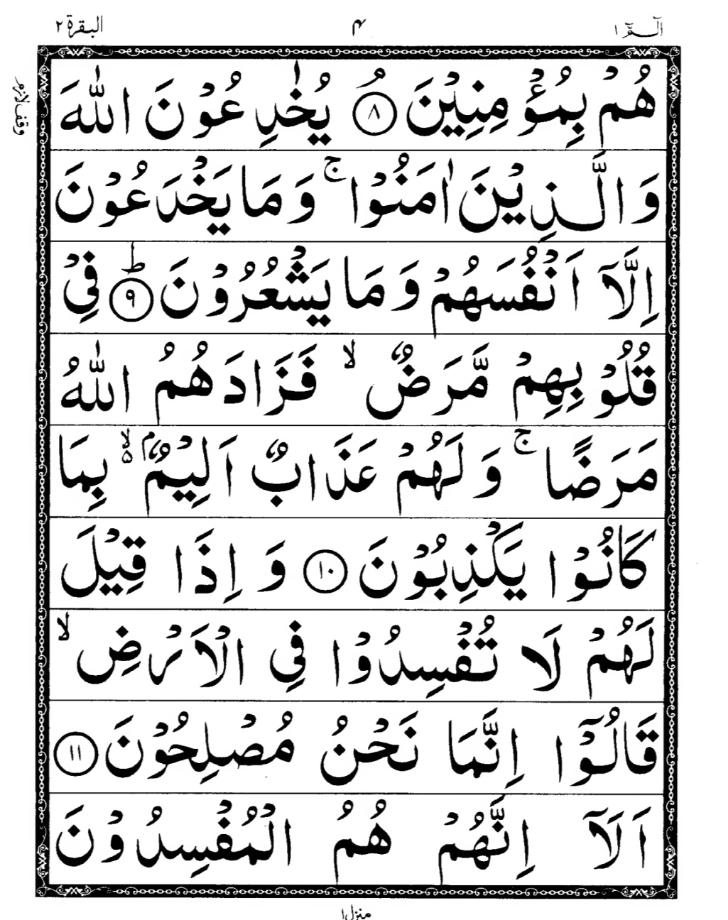 الٓمّٓ ١ ٤ البقرة ٢
وقف لازم
هُمْ بِمُؤْمِنِيْنَ ۘ ﴿٨﴾ يُخٰدِعُوْنَ اللّٰهَ
وَالَّذِيْنَ اٰمَنُوْا ۚ وَمَا يَخْدَعُوْنَ
اِلَّآ اَنْفُسَهُمْ وَمَا يَشْعُرُوْنَ ؕ ﴿٩﴾ فِيْ
قُلُوْبِهِمْ مَّرَضٌ ۙ فَزَادَهُمُ اللّٰهُ
مَرَضًا ۚ وَلَهُمْ عَذَابٌ اَلِيْمٌۢ ۙ۵ بِمَا
كَانُوْا يَكْذِبُوْنَ ﴿١٠﴾ وَاِذَا قِيْلَ
لَهُمْ لَا تُفْسِدُوْا فِي الْاَرْضِ ۙ
قَالُوْٓا اِنَّمَا نَحْنُ مُصْلِحُوْنَ ﴿١١﴾
اَلَآ اِنَّهُمْ هُمُ الْمُفْسِدُوْنَ
منزل ١